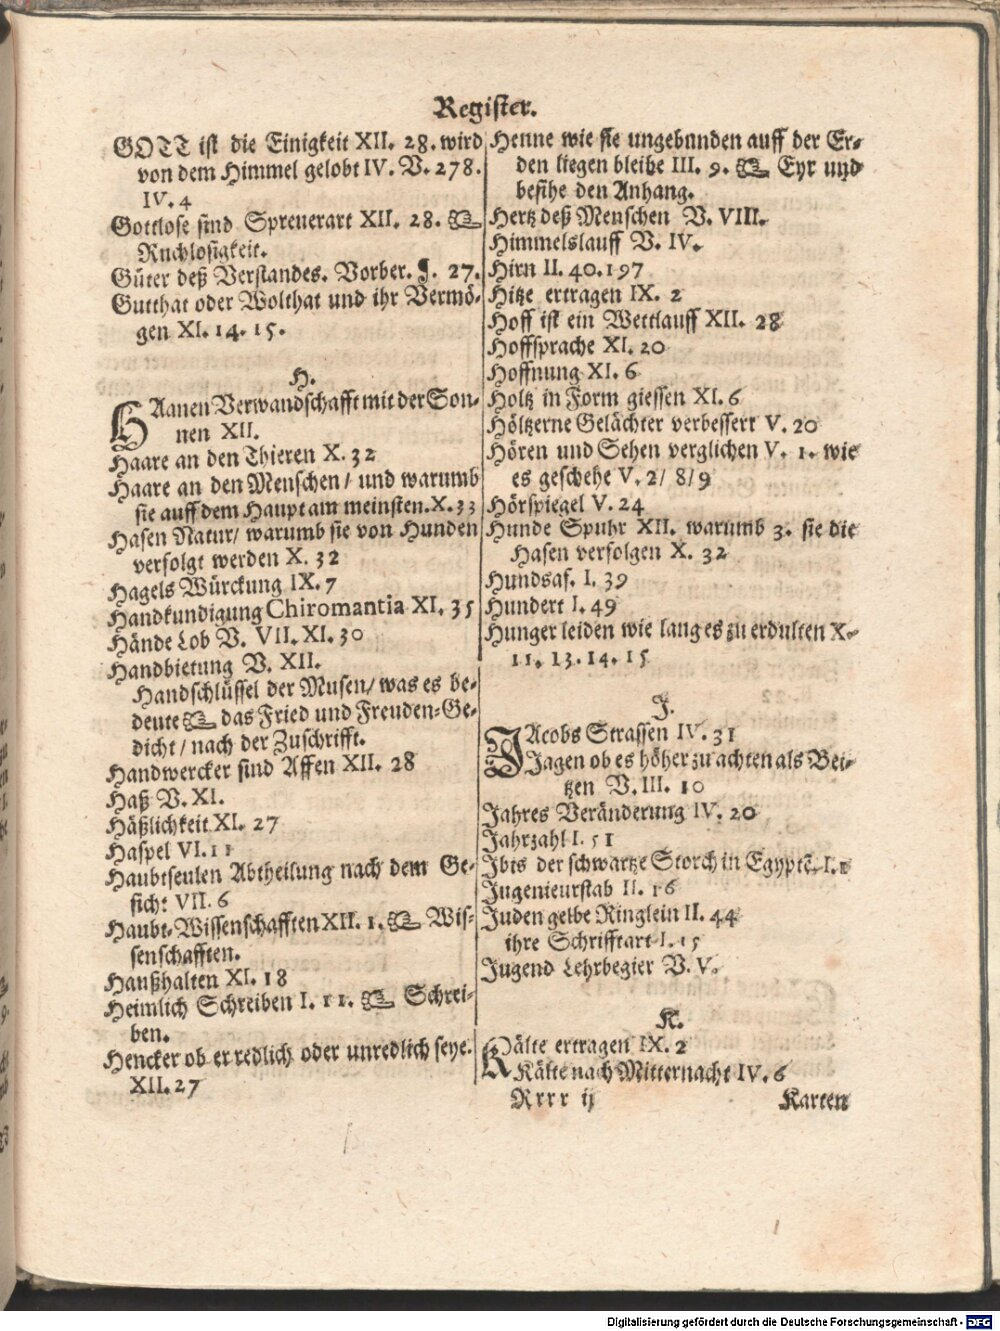 Register.
GOTT ist die Einigkeit XII. 28. wird
von dem Himmel gelobt IV. V. 278.
IV. 4
Gottlose sind Spreuerart XII. 28. ☞
Ruchlosigkeit.
Güter deß Verstandes. Vorber. §. 27.
Gutthat oder Wolthat und ihr Vermö-
gen XI. 14. 15.
H.
HAanen Verwandschafft mit der Son-
nen XII.
Haare an den Thieren X. 32
Haare an den Menschen/ und warumb
sie auff dem Haupt am meinsten. X. 33
Hasen Natur/ warumb sie von Hunden
verfolgt werden X. 32
Hagels Würckung IX. 7
Handkundigung Chiromantia XI. 35
Hände Lob V. VII. XI. 30
Handbietung V. XII.
Handschlüssel der Musen/ was es be-
deute ☞ das Fried und Freuden-Ge-
dicht/ nach der Zuschrifft.
Handwercker sind Affen XII. 28
Haß V. XI.
Häßlichkeit XI. 27
Haspel VI. 11
Haubtseulen Abtheilung nach dem Ge-
sicht VII. 6
Haubt-Wissenschafften XII. 1. ☞ Wis-
senschafften.
Haußhalten XI. 18
Heimlich Schreiben I. 11. ☞ Schrei-
ben.
Hencker ob er redlich oder unredlich seye.
XII. 27
Henne wie sie ungebunden auff der Er-
den liegen bleibe III. 9. ☞ Eyr und
besihe den Anhang.
Hertz deß Menschen V. VIII.
Himmelslauff V. IV.
Hirn II. 40. 197
Hitze ertragen IX. 2
Hoff ist ein Wettlauff XII. 28
Hoffsprache XI. 20
Hoffnung XI. 6
Holtz in Form giessen XI. 6
Höltzerne Gelächter verbessert V. 20
Hören und Sehen verglichen V. 1. wie
es geschehe V. 2/ 8/9
Hörspiegel V. 24
Hunde Spuhr XII. warumb 3. sie die
Hasen verfolgen X. 32
Hundsaf. I. 39
Hundert I. 49
Hunger leiden wie lang es zu erdulten X.
11. 13. 14. 15
J.
JAcobs Strassen IV. 31
Jagen ob es höher zu achten als Bei-
tzen V. III. 10
Jahres Veränderung IV. 20
Jahrzahl I. 51
Ibis der schwartze Storch in Egyptē. I. 1
Ingenieurstab II. 16
Juden gelbe Ringlein II. 44
ihre Schrifftart I. 15
Jugend Lehrbegier V. V.
K.
KÄlte ertragen IX. 2
Kälte nach Mitternacht IV. 6
Rrrr ij Karten
Digitalisierung gefördert durch die Deutsche Forschungsgemeinschaft - DFG